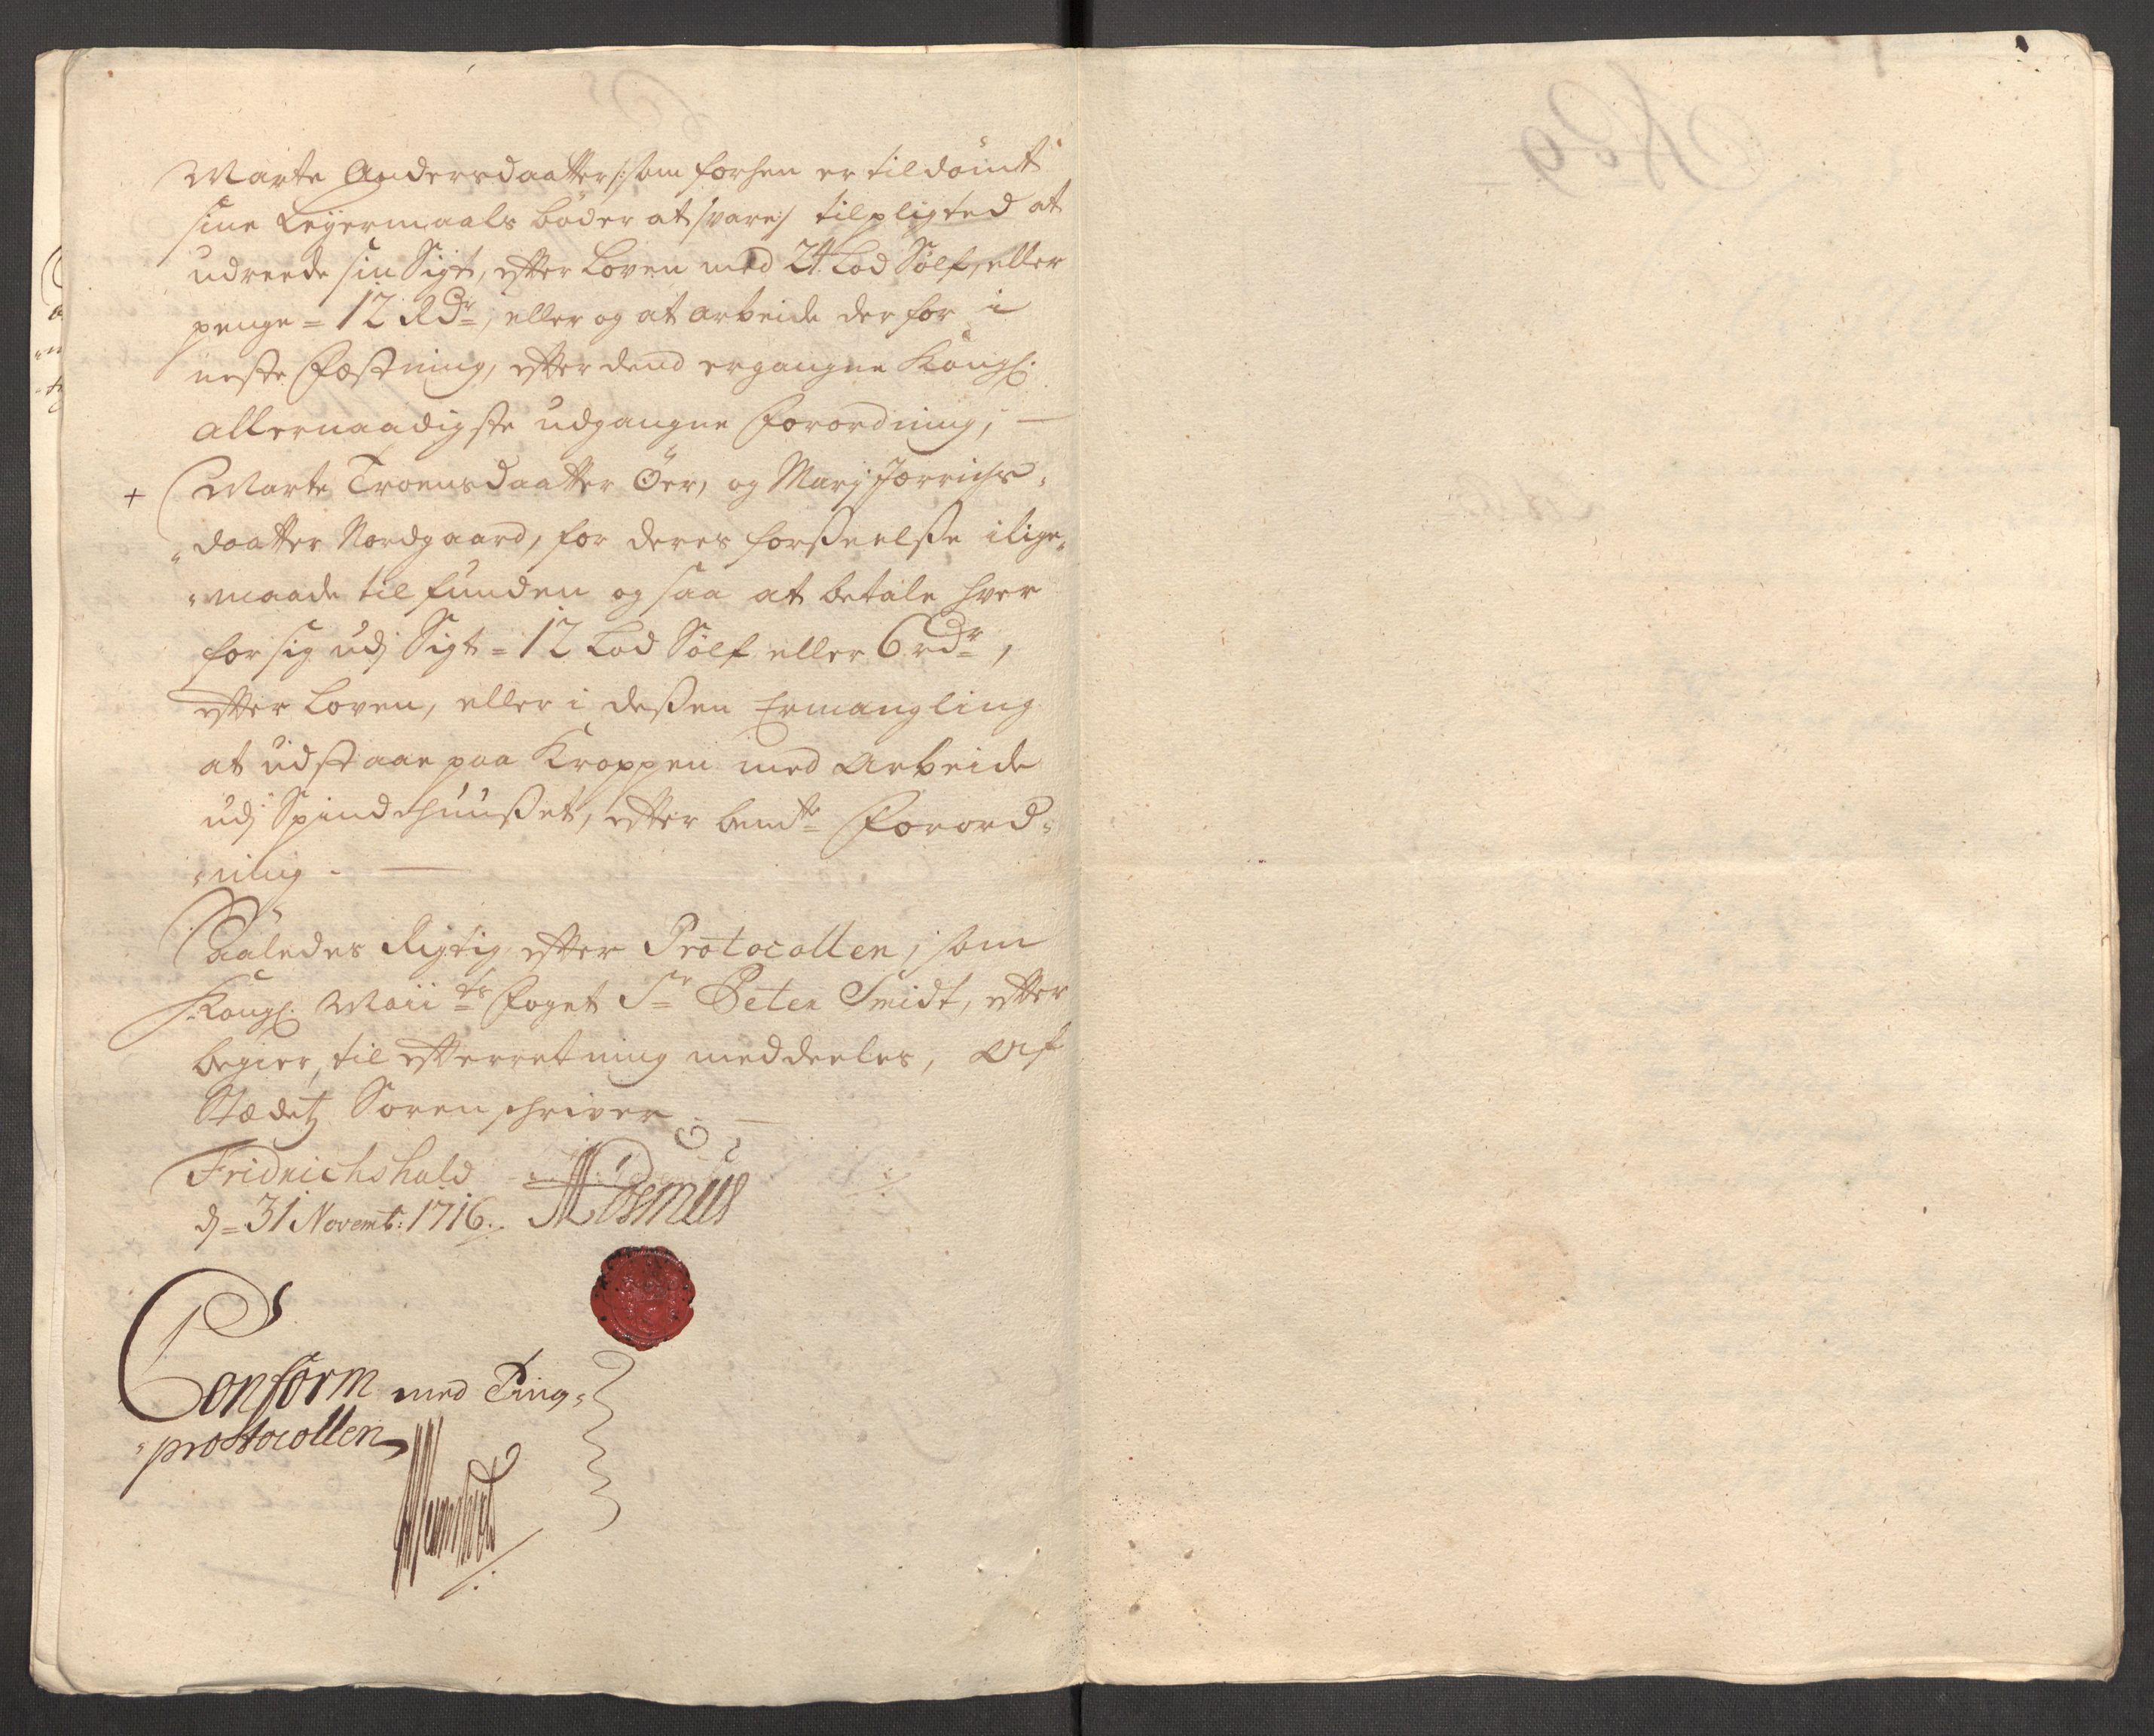 Marte Andersdaatter /: som forhen er tildömt
sine Leyermaals böder at svare :/ tilpligted at
udreede sin Sigt, efter Loven med 24 Lod Sölf, eller
penge = 12 Rdr, eller og at arbeide der for i
neste Fæstning, efter dend ergangne Kongl:
allernaadigste udgangne Forordning, —
+ Marte Troensdaatter Öer, og Marj Jörrichs-
daatter Nordgaard, for deres forsseelsse i lige-
maade tilfunden og saa at betale hver
for sig udj Sigt = 12 Lod Sölf eller 6 rdr,
efter Loven, eller i dessen Ermangling
at udstaae paa Kroppen med Arbeide
udj Spindehuusset, efter bemte Forord-
ning. —
Saaledes Rigtig efter Protocollen, som
Kongl: Maiits Foget Sr Peter Smidt, efter
begier, til efterretning meddeeles, Af
Stædetz Sorenschriver. —
Fridrichshald
d = 31 Novemb: 1716.
Conform med Ting-
protocollen